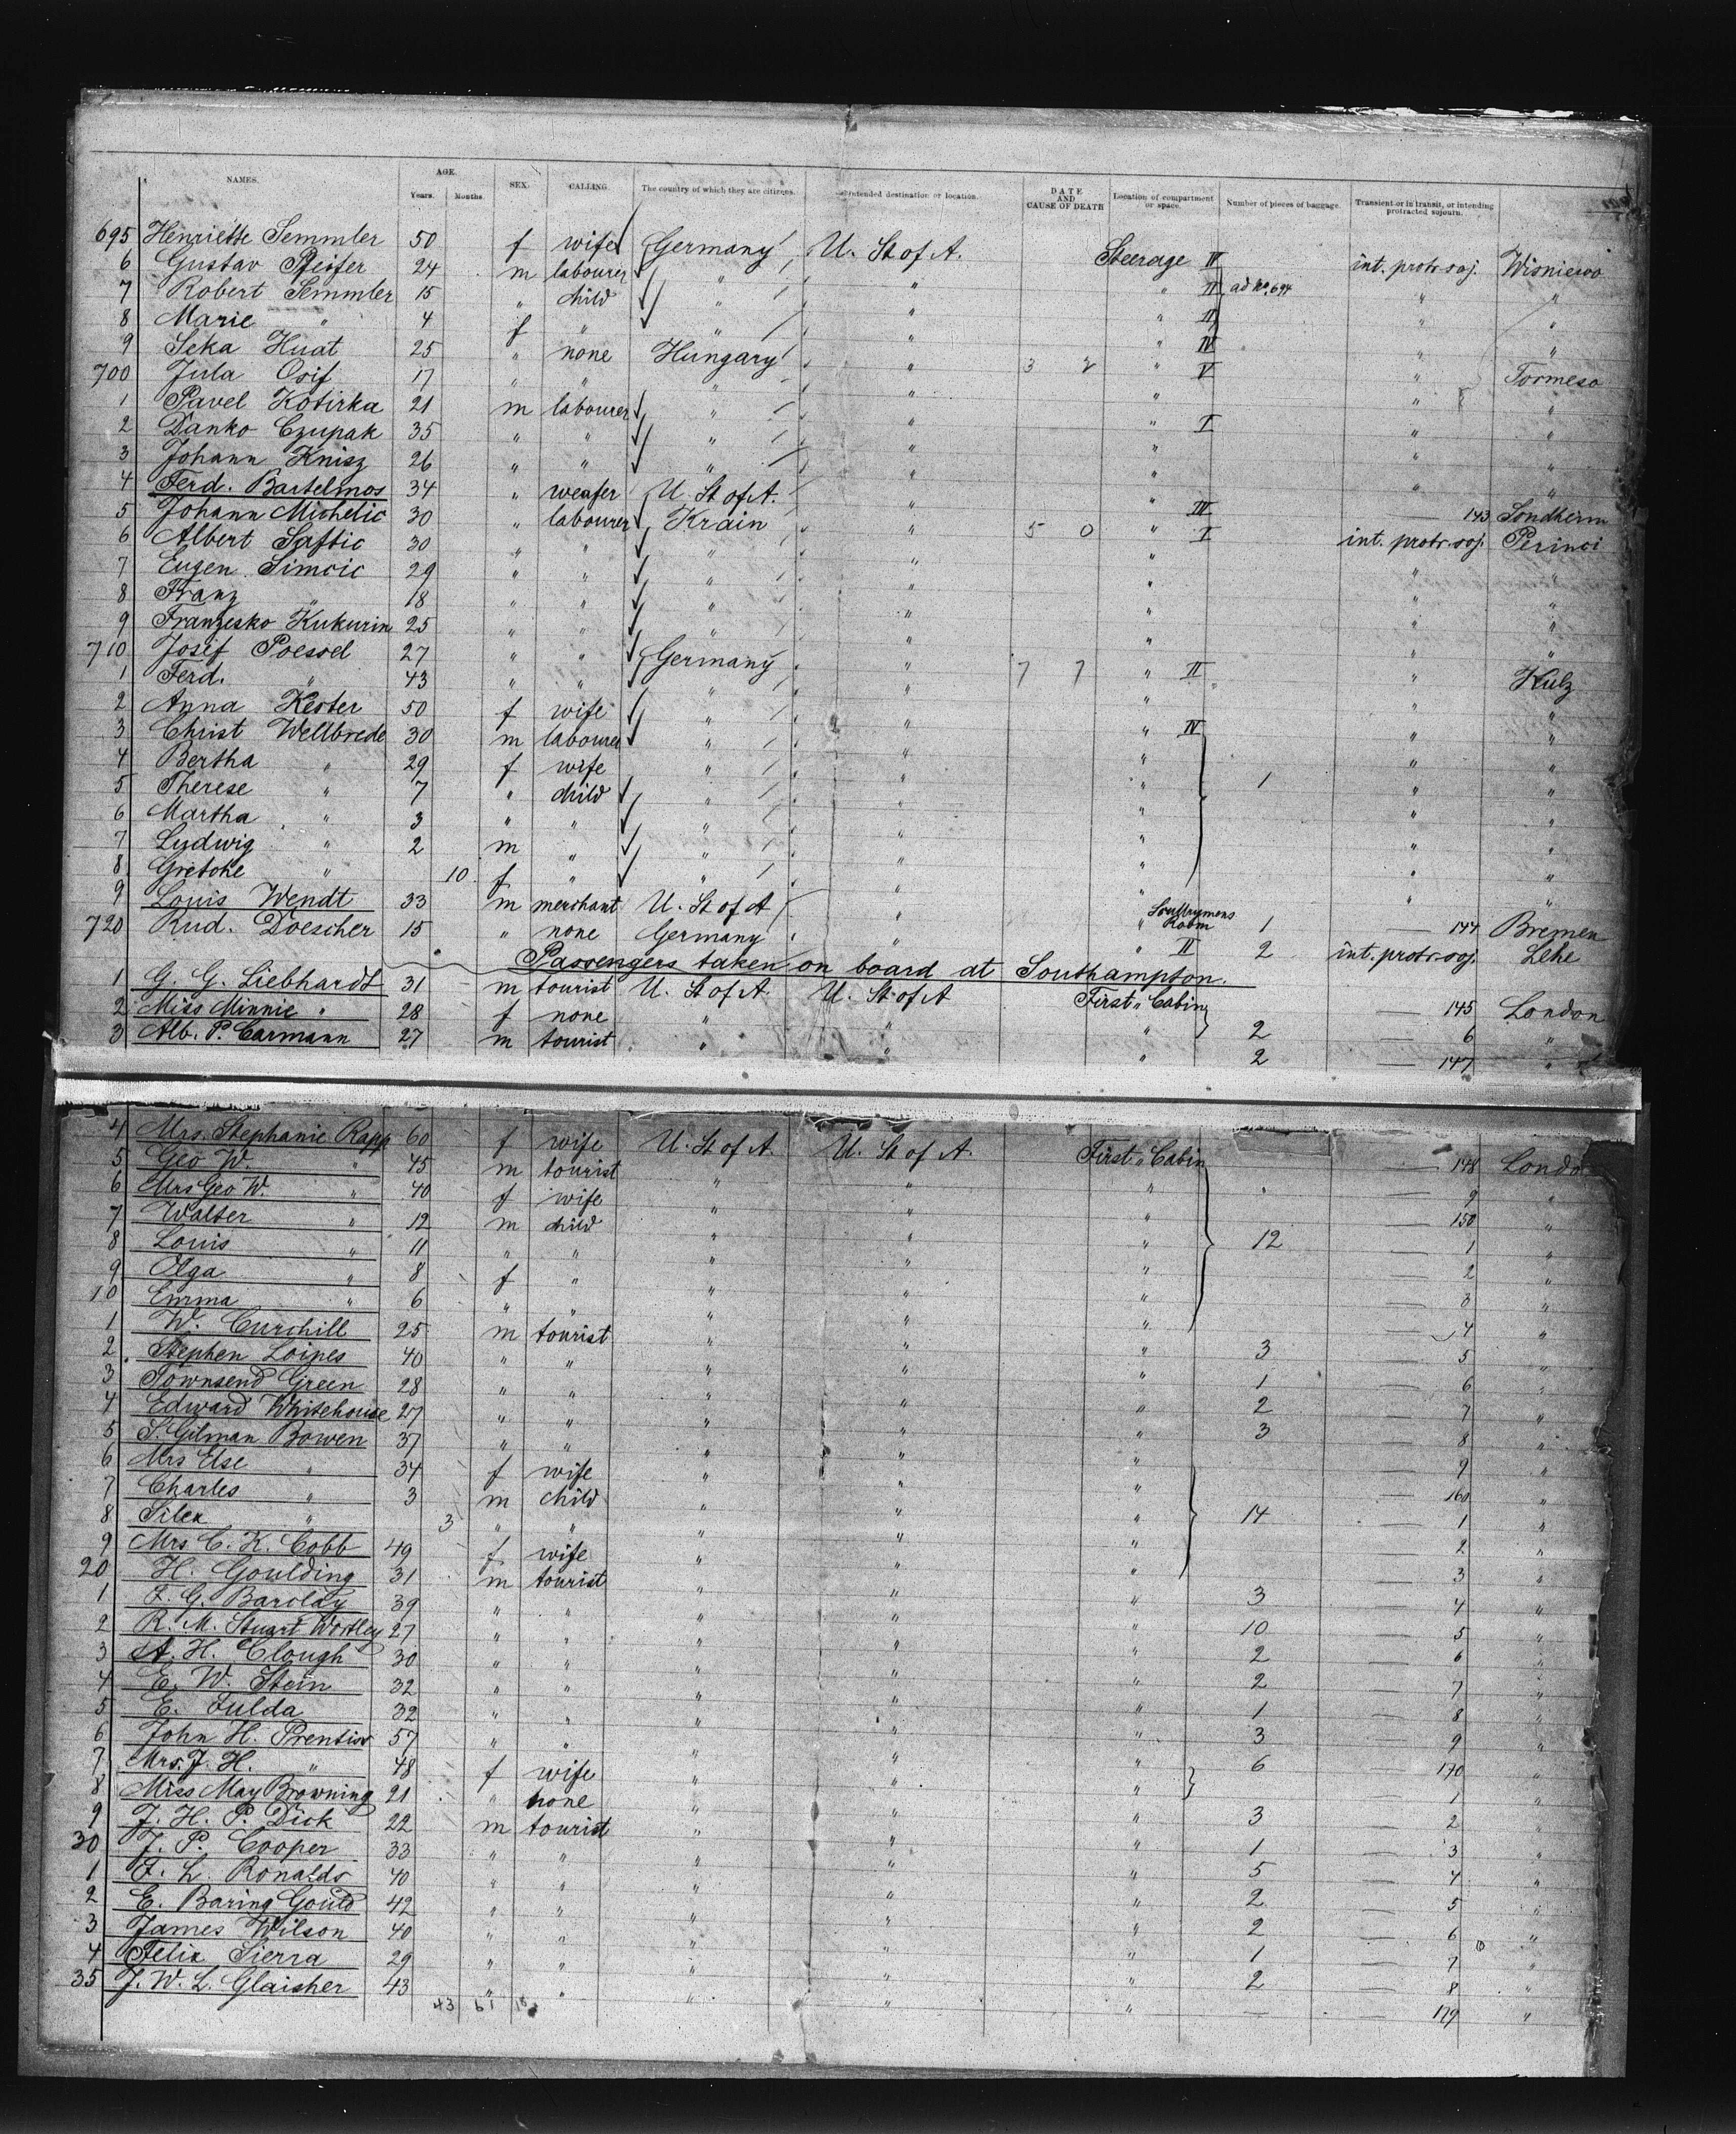 NAMES. AGE. Years. Months. SEX. CALLING. The country of which they are citizens. Intended destination or location. DATE AND CAUSE OF DEATH Location of compartment or space. Number of pieces of baggage. Transient or in transit, or intending protracted sojourn.
695 Henriette Semmler 50 f wife Germany U. St of A. Steerage IV int. protr. soj. Wisniewo
6 Gustav Pfeifer 24 m labourer " " " II ad No. 694 " "
7 Robert Semmler 15 " child " " " II " "
8 Marie " 4 f " " " " IV " "
9 Seka Huat 25 " none Hungary " 3 2 " V " Tormeso
700 Jula Osif 17 " " " " " " "
1 Pavel Kotirka 21 m labourer " " " I " "
2 Danko Czupak 35 " " " " " " "
3 Johann Knisz 26 " " " " " " "
4 Ferd. Bartelmos 34 " weafer U. St of A. " " III — 143 Sondheim
5 Johann Michelic 30 " labourer Krain " 5 0 " I int. protr. soj. Perinci
6 Albert Saftic 30 " " " " " " "
7 Eugen Simcic 29 " " " " " " "
8 Franz " 18 " " " " " " "
9 Franzesko Kukurin 25 " " " " " " "
710 Josef Poessel 27 " " Germany " 7 7 " II " Kulz
1 Ferd. " 43 " " " " " " "
2 Anna Kester 50 f wife " " " IV " "
3 Christ Wellbrede 30 m labourer " " " " "
4 Bertha " 29 f wife " " " 1 " "
5 Therese " 7 " child " " " " "
6 Martha " 3 " " " " " " "
7 Ludwig " 2 m " " " " " "
8 Gretche " 10 f " " " " " "
9 Louis Wendt 33 m merchant U. St of A " " Room 1 — 144 Bremen
720 Rud. Doescher 15 " none Germany " " II 2 int. protr. soj. Lehe
Passengers taken on board at Southampton.
1 G. G. Liebhardt 31 m tourist U. St of A. U. St of A First " Cabin — 145 London
2 Miss Minnie " 28 f none " " " 2 — 6 "
3 Alb. P. Carmann 27 m tourist " " " 2 — 147 "
4 Mrs. Stephanie Rapp 60 f wife U. St of A. U. St of A. First " Cabin — 148 Londo
5 Geo W. " 45 m tourist " " " — 9 "
6 Mrs Geo W. " 40 f wife " " " — 150 "
7 Walter " 12 m child " " " 12 — 1 "
8 Louis " 11 " " " " " — 2 "
9 Olga " 8 f " " " " — 3 "
10 Emma " 6 " " " " " — 4 "
1 W. Curchill 25 m tourist " " " 3 — 5 "
2 Stephen Loines 40 " " " " " 1 — 6 "
3 Townsend Green 28 " " " " " 2 — 7 "
4 Edward Whitehouse 27 " " " " " 3 — 8 "
5 S. Gilman Bowen 37 " " " " " — 9 "
6 Mrs Else " 34 f wife " " " — 160 "
7 Charles " 3 m child " " " 14 — 1 "
8 Silex " 3 " " " " " — 2 "
9 Mrs C. K. Cobb 49 f wife " " " — 3 "
20 H. Goulding 31 m tourist " " " 3 — 4 "
1 F. G. Barclay 39 " " " " " 10 — 5 "
2 R. M. Stuart Wortley 27 " " " " " 2 — 6 "
3 A. H. Clough 30 " " " " " 2 — 7 "
4 E. W. Stein 32 " " " " " 1 — 8 "
5 E. Fulda 32 " " " " " 3 — 9 "
6 John H. Prentiss 57 " " " " " 6 — 170 "
7 Mrs. J. H. " 48 f wife " " " — 1 "
8 Miss May Browning 21 " none " " " 3 — 2 "
9 J. H. P. Dick 22 m tourist " " " 1 — 3 "
30 J. P. Cooper 33 " " " " " 5 — 4 "
1 F. L. Ronalds 40 " " " " " 2 — 5 "
2 E. Baring Gould 42 " " " " " 2 — 6 "
3 James Wilson 40 " " " " " 1 — 7 "
4 Felix Sierra 29 " " " " " 2 — 8 "
35 J. W. L. Glaisher 43 " " " " " — — 179 "
43 61